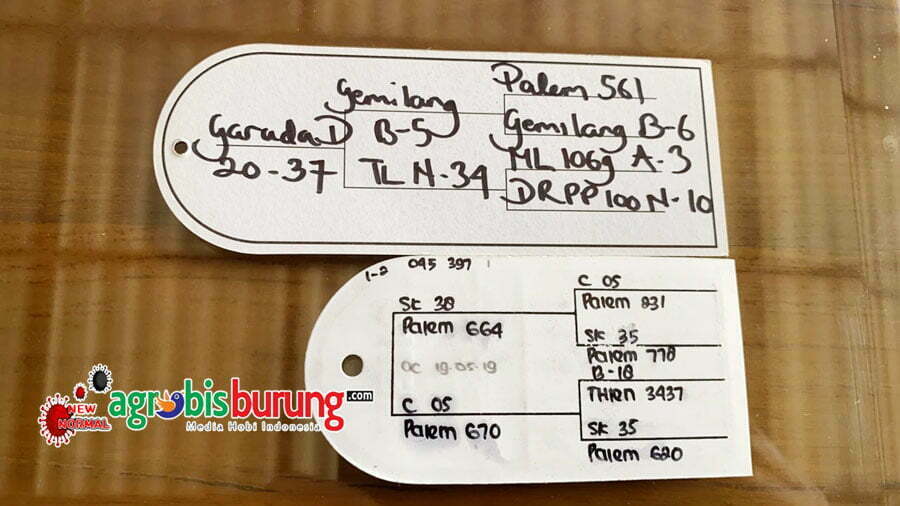 Palem 561
Gemilang
Garuda D B-5 Gemilang B-6
20-37 TL N-34 ML 1069 A-3
DRPP100 N-10
1-2 045 397
C 05
SK 38 Palem 831
Palem 664 SK 35
Palem 778
OC 19-05-19 B-18
C 05 THRN 3437
Palem 670 SK 35
Palem 620
NEW NORMAL
agrobisburung.com
Media Hobi Indonesia